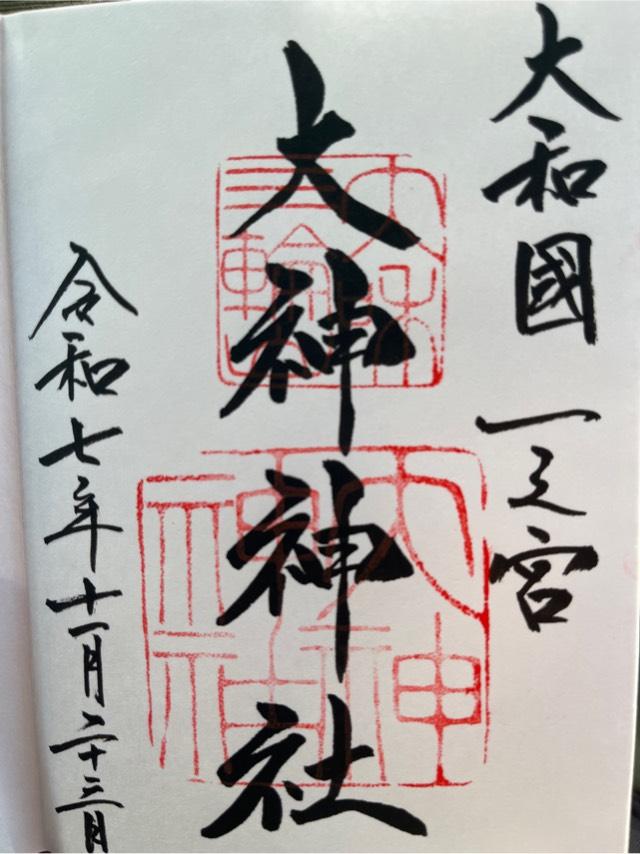 大和國 一之宮
大神神社
令和七年十一月二十三日
大神
神社